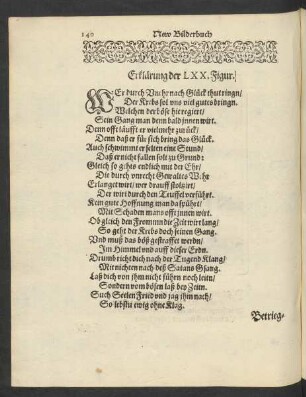 140 New Bilderbuch
Erklärung der LXX. Figur.
WEr durch Vnehr nach Glück thut ringn/
Der Krebs sol vns viel gutes bringn.
Welchen der böse hie regiert/
Sein Gang man denn bald innen wirt.
Denn offt läufft er vielmehr zurück/
Denn daß er für sich bring das Glück.
Auch schwimmt er selten eine Stund/
Daß er nicht fallen solt zu Grund:
Gleich so gehts endlich mit der Ehr/
Die durch vnrecht Gewaltes Wehr
Erlanget wirt/ wer drauff stolzirt/
Der wirt durch den Teuffel verführt.
Kein gute Hoffnung man da spührt/
Mit Schaden mans offt innen wirt.
Ob gleich den Frommn die Zeit wirt lang/
So geht der Krebs doch seinen Gang.
Vnd muß das böß gestraffet werdn/
Im Himmel vnd auff dieser Erdn.
Drumb richt dich nach der Tugend Klang/
Mit nichten nach deß Satans Gsang.
Laß dich von ihm nicht führn noch leitn/
Sondern vom bösen laß bey Zeitn.
Such Seelen Fried vnd jag ihm nach/
So lebstu ewig ohne Klag.
Betrieg-